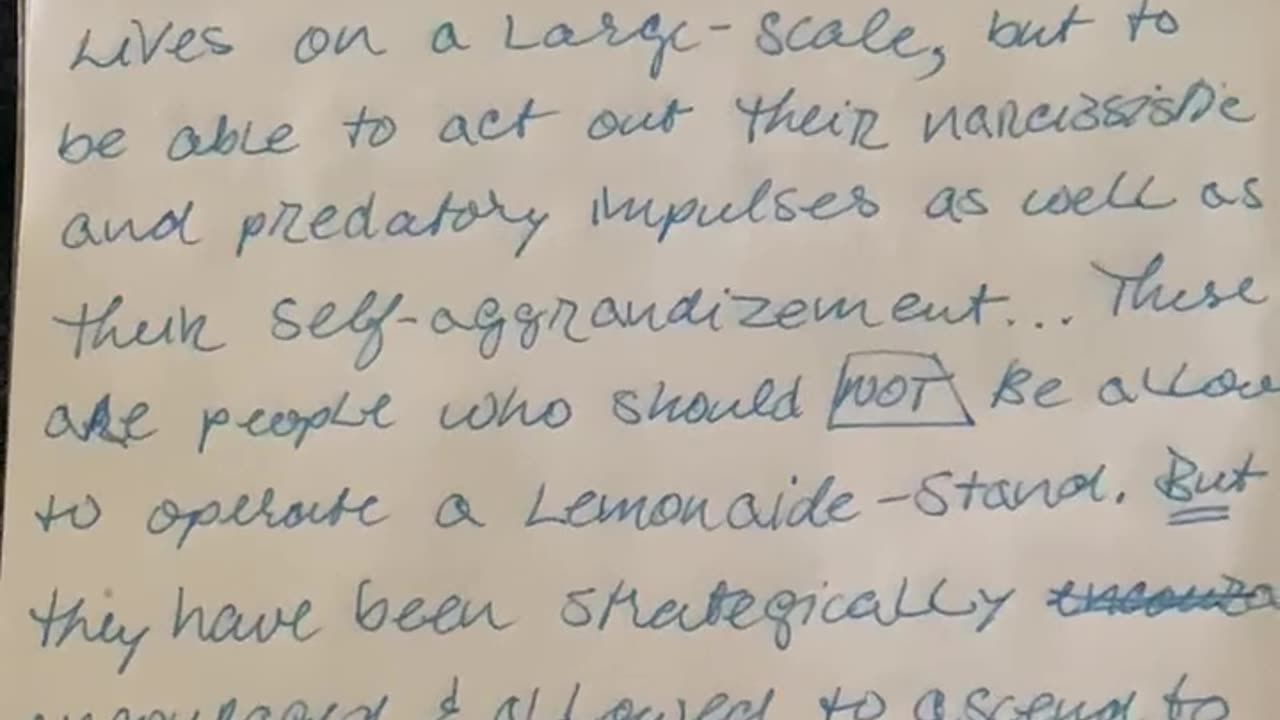 Lives on a Large-scale, but to
be able to act out their narcissistic
and predatory impulses as well as
their self-aggrandizement... These
are people who should NOT Be allow
to operate a Lemonaide-Stand. But
they have been strategically
encouraged & allowed to ascend to